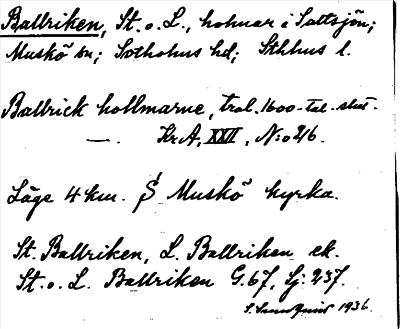 Ballriken, St. o. L., holmar i Saltsjön;
Muskö sn; Sotholms hd; Sthlms l.
Ballrick hollmarne, trol. 1600-tal. slut.
—. Kr A, XXII, N:o 26.
Läge 4 km. S Muskö kyrka.
St. Ballriken, L. Ballriken ek.
St. o. L. Ballriken G. 67, Lj. 237.
1936.